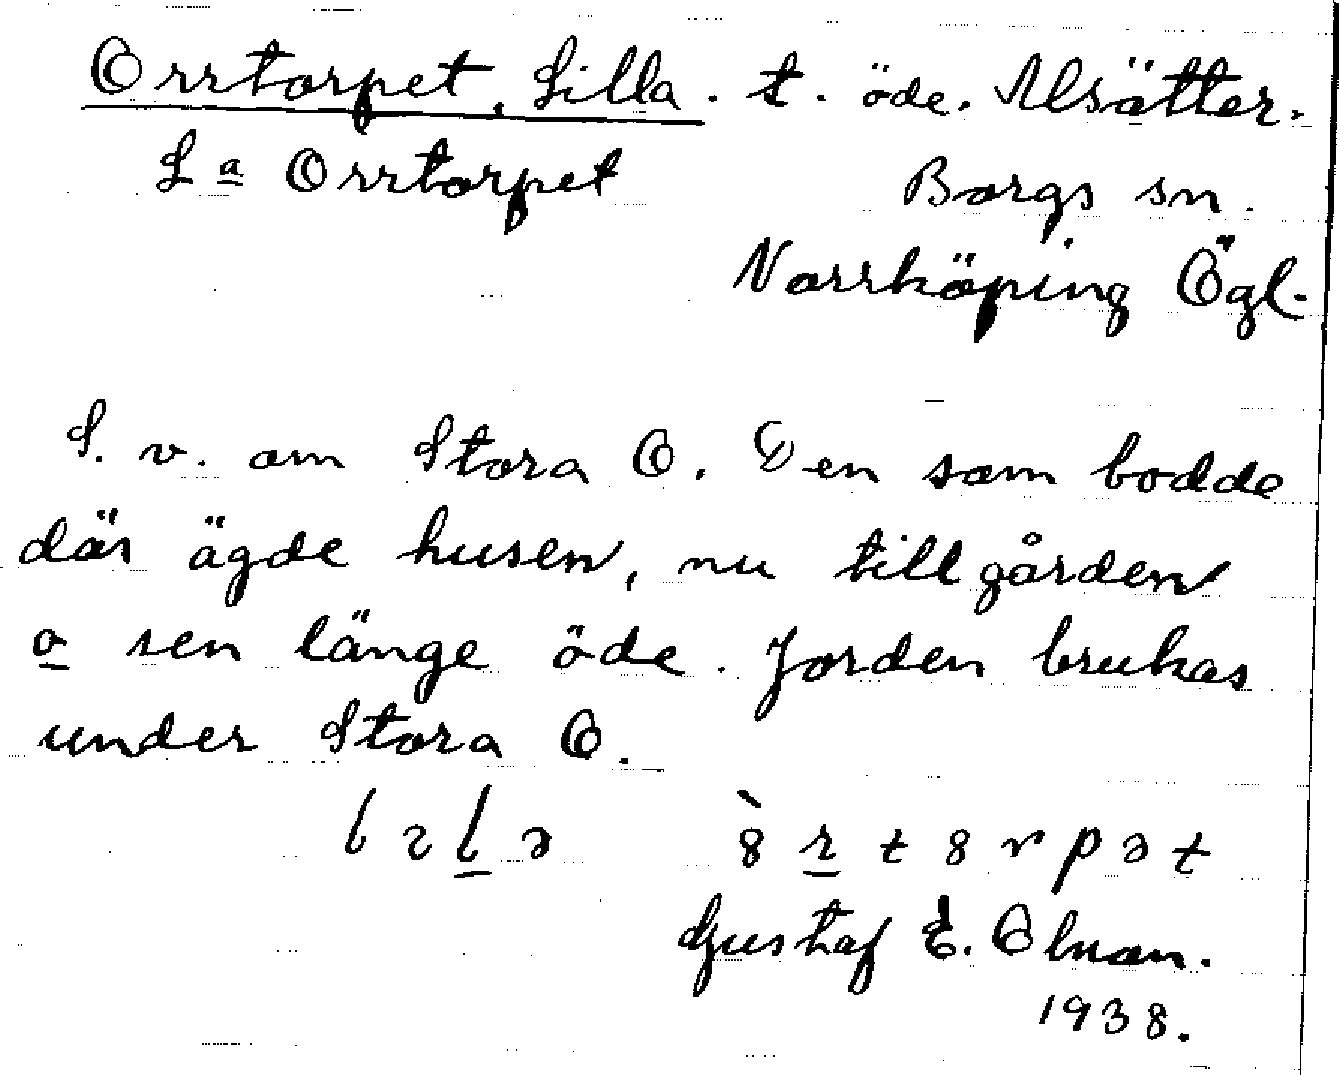 Orrtorpet, Lilla. t. öde. Alsätter.
La Orrtorpet
Borgs sn.
Norrköping Ögl.
S. v. om Stora O. Den som bodde
där ägde husen, nu till gården
o sen länge öde. Jorden brukas
under Stora O.
Gustaf E.
1938.